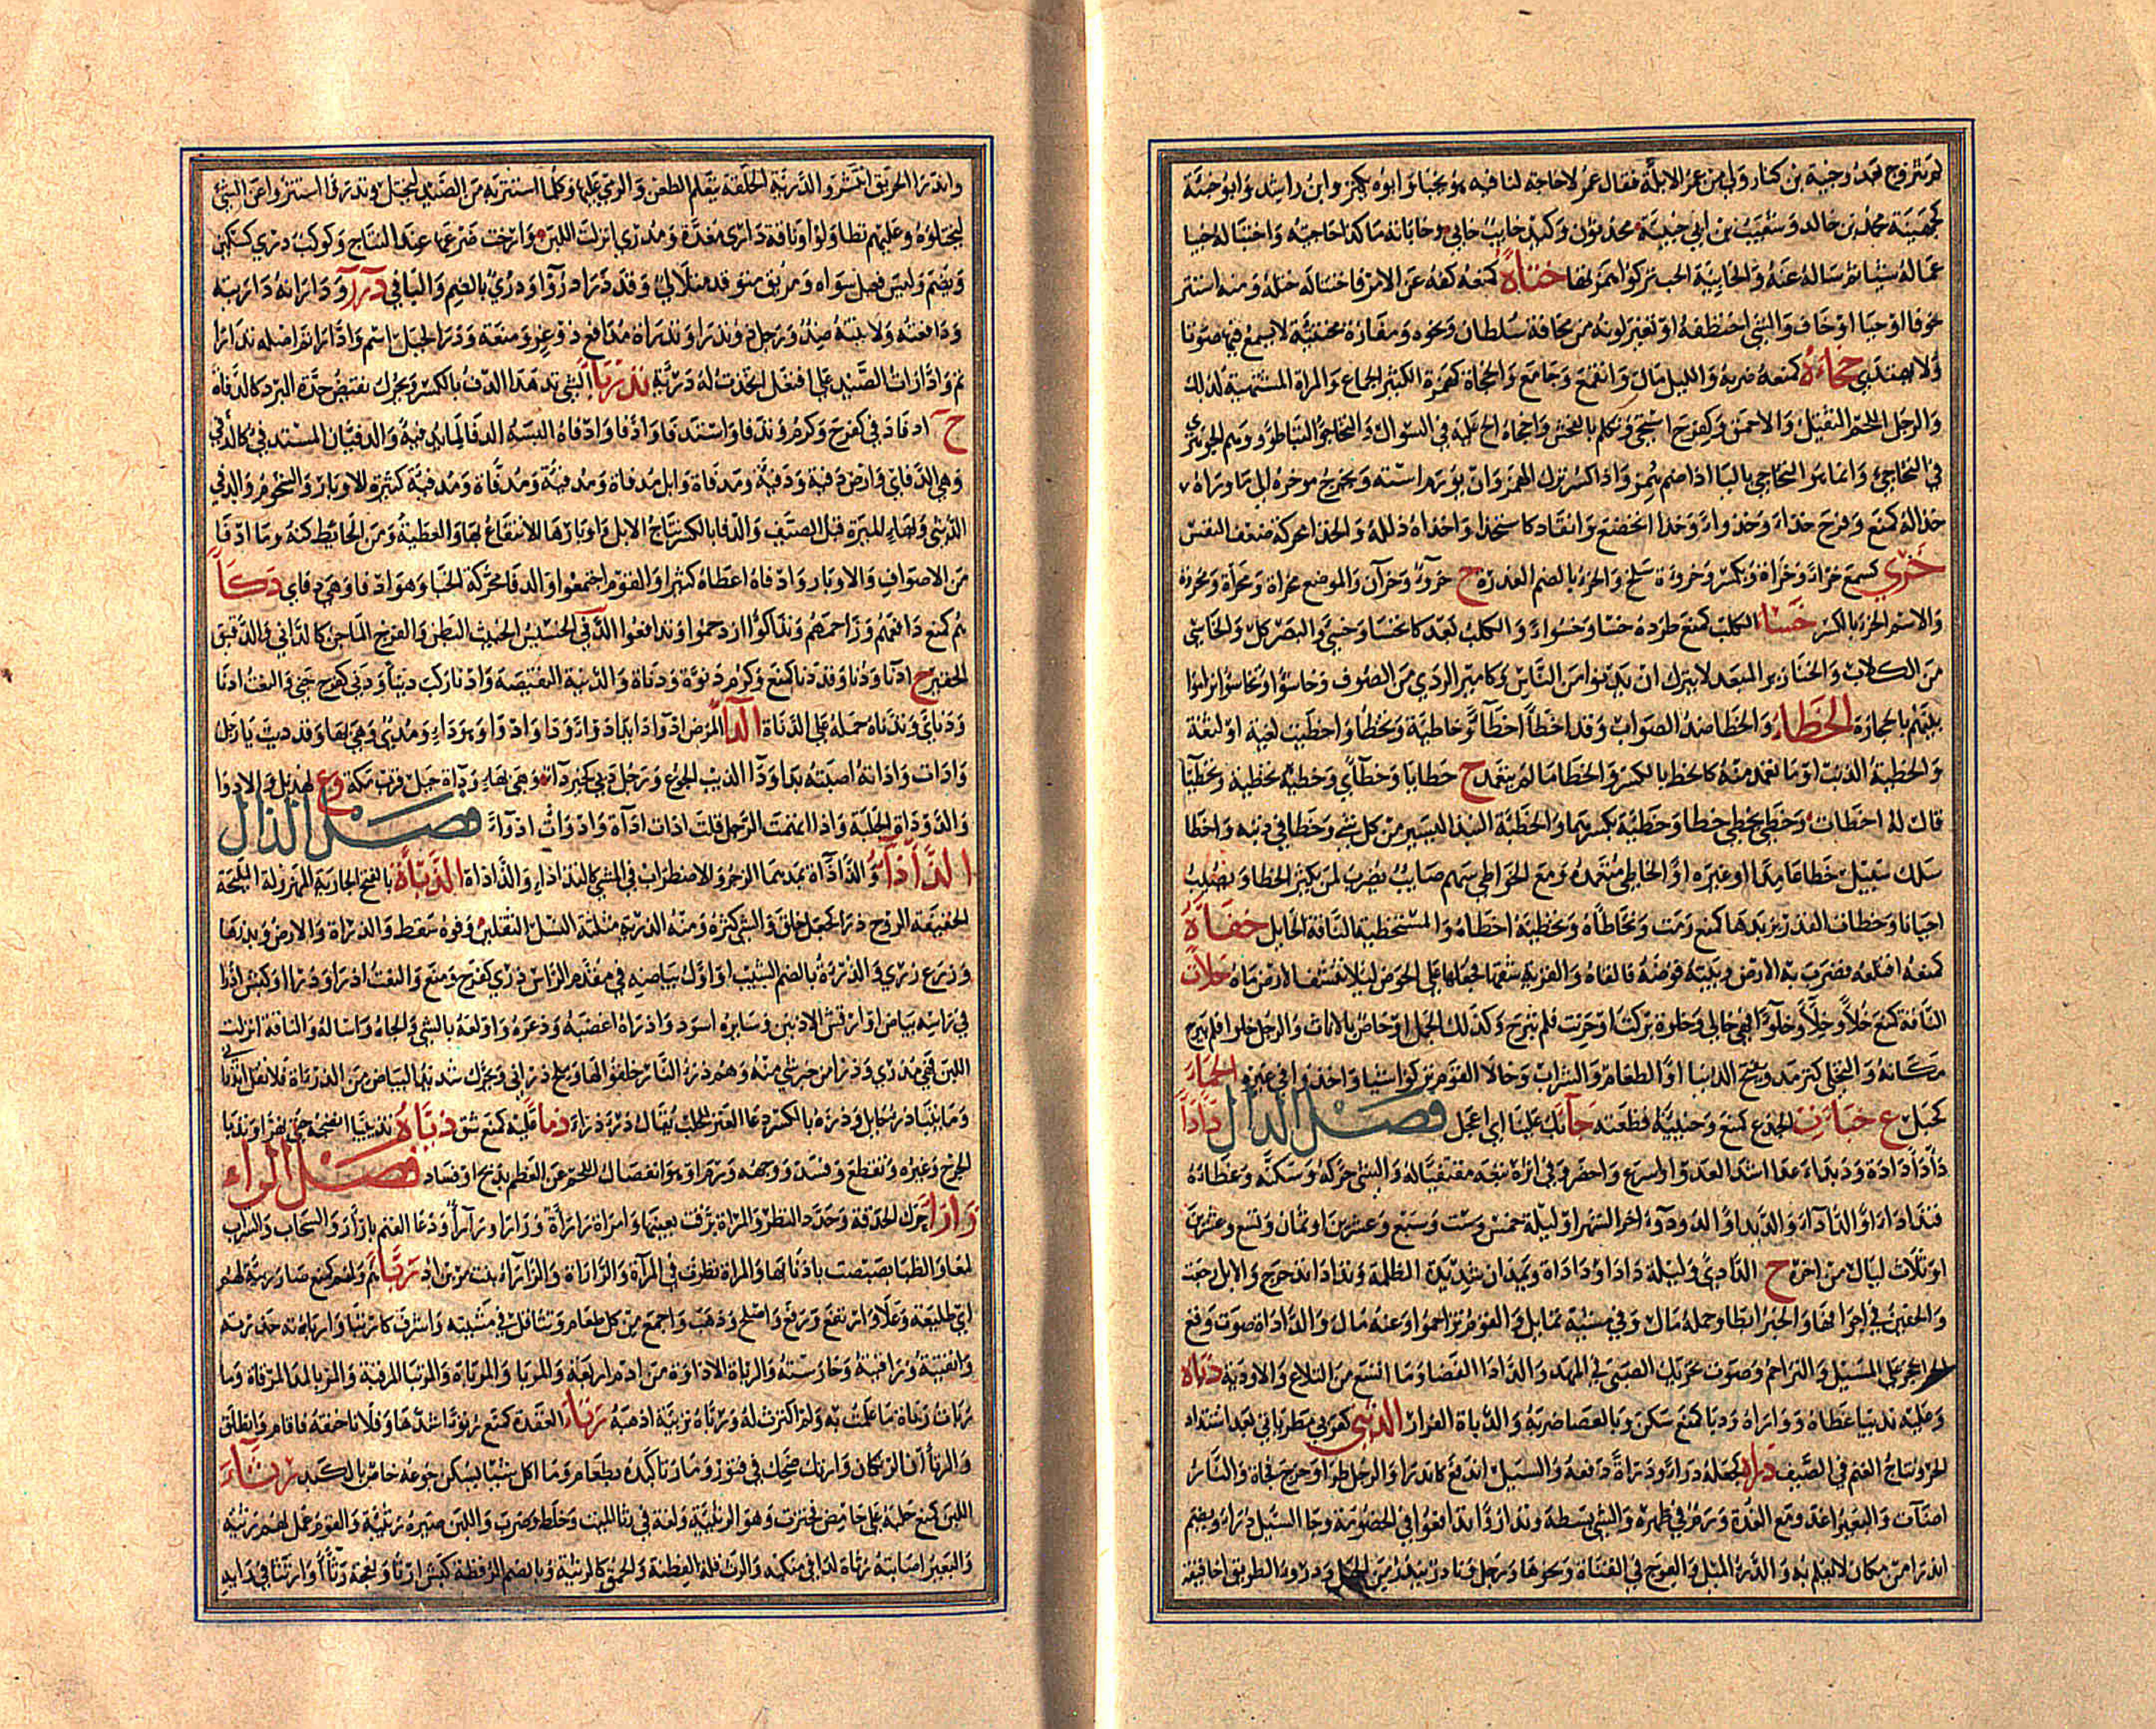 لم يتزوج بعده وجبة بن كناز ولي من عمر الابلة فقال عمر لا حاجة لنا فيه هو يخبأ وابوه يكنز وابن راشد وابو خبية
كجهينة محمد بن خالد وشعيب بن ابي خبيئة محدثون وكيد خابئ خائب وخابأته ما كذا حاجيته واختبأ له خبيا
عمى له شيا ثم سأله عنه والخابية الحب تركوا همزها ختأه كمنعه كفه عن الامر فاختتأ له ختله ومنه استتر
خوفا او حيا او خاف والشي اختطفه او تغير لونه من مخافة سلطان ونحوه ومفازة مختتئة لا يسمع فيها صوتا
ولا يهتدى خجأه كمنعه ضربه والليل مال وانقمع وجامع والخجأة كهمزة الكثير الجماع والمراة المشتهية لذلك
والرجل اللحم الثقيل والاحمق وكفرح استحيى وتكلم بالفحش واخجأه الح عليه في السؤال والتخاجؤ التباطؤ ووهم الجوهري
في التخاجئ وانما هو التخاجي باليا اذا ضم همز واذا كسر ترك الهمز وان يورم استه ويخرج موخره الى ما وراه
خذأ له كمنع وفرح خذاء وخذوءا وخذأ انخضع وانقاد كاستخذا واخذاه ذلله والخذا محركة ضعف النفس
خري كسمع خراءة وخراة ويكسر وخروءة سلح والخرء بالضم العذرة ج خروء وخرآن والموضع مخراة ومخرأة ومخروة
والاسم الخراء بالكسر خسأ الكلب كمنع طرده خسأ وخسوءا والكلب بعد كانخسأ وخسئ والبصر كل والخاسئ
من الكلاب والخنازير المبعد لا يترك ان يدنو من الناس وكامير الردي من الصوف وخاسؤا وتخاسؤا تراموا
بينهم بالحجارة الخطأ والخطأ ضد الصواب وقد اخطأ اخطاء وخاطئة وتخطأ وخطئ واخطيت لغية او لثغة
والخطيئة الذنب او ما تعمد منه كالخطء بالكسر والخطأ ما لم يتعمد ج خطايا وخطائي وخطأه تخطئة وتخطيئا
قال له اخطات وخطئ يخطأ خطأ وخطئة بكسرهما والخطيئة النبذ اليسير من كل شي وخطئ في دينه واخطأ
سلك سبيل خطأ عامدا او غيره او الخاطئ متعمده ومع الخواطئ سهم صائب يضرب لمن يكثر الخطا ويصيب
احيانا وخطأت القدر بزبدها كمنع رمت وتخاطأه وتخطأه اخطأه والمستخطئة الناقة الحائل خفأه
كمنعه اقتلعه فضرب به الارض وبيته قوضه فالقاه والقربة شقها فجعلها على الحوض ليلا تنشف الارض ماه خلأت
الناقة كمنع خلأ وخلاء وخلوءا فهي خالئ وخلوء بركت او حرنت فلم تبرح وكذلك الجمل او خاص بالاناث والرجل خلوءا لم يبرح
مكانه والتخلئ كترمذ ويفتح الدنيا او الطعام والشراب وخالأ القوم تركوا شيا واخذوا في غيره الخماء
كجبل ع خنأ الجذع كمنع وخنيته قطعته خاء بك علينا اي اعجل فصل الدال دأدأ
دأدأة ودئداء عدا اشد العدو او اسرع واحضر وفي اثره تبعه مقتفيا له والشي حركه وسكنه وغطاه
فتدأدأ والدأداء والدئداء والدودؤ اخر الشهر او ليلة خمس وست وسبع وعشرين او ثمان وتسع وعشرين
او ثلاث ليال من اخره ج الدآدئ وليلة دأداء ودأداءة ويمدان شديدة الظلمة وتدأدأ تدحرج والابل رجعت
الحنين في اجوافها والخبر ابطا وحمله مال وفي مشيه تمايل والقوم تزاحموا وعنه مال والدأدأة صوت وقع
الحجر على المسيل والتزاحم وصوت تحريك الصبي في المهد والدأداء الفضا وما اتسع من التلاع والاودية دبأه
وعليه تدبيا غطاه ووراه ودبأ كمنع سكن وبالعصا ضربه والدبأة الفرار الدثئي كعربي مطر ياتي بعد اشتداد
الحر ونتاج الغنم في الصيف درأه كجعله درءا ودرأة دفعه والسيل اندفع كاندرأ والرجل طرأ وخرج فجاة والنار
اضات والبعير اغد ومع الغدة ورم في ظهره والشي بسطه وتدارؤا تدافعوا في الخصومة وجا السيل درأ ويضم
اندرأ من مكان لا يعلم به والدرء الميل والعوج في القناة ونحوها ونادر يندر من الجبل ودروء الطريق اخاقيقه
واندرأ الحريق انتشر والدريئة الحلقة يتعلم الطعن والرمي عليها وكلما استتر به من الصيد ليختل وتدرؤا استتروا عن الشي
ليختلوه وعليهم تطاولوا وناقة دارئ مغدة ومدرئ انزلت اللبن وارخت ضرعها عند النتاج وكوكب دري كسكين
ويضم وليس فعيل سواه ومريق متوقد متلالئ وقد درأ دروءا ودري بالضم واليا في درر ودارأته داريته
ودافعته ولاينته ضد ورجل ذو تدرإ وتدرأة مدافع ذو عز ومنعة ودرأ الجبل اسم وادارأتم اصله تدارأ
تم وادارأت الصيد على افتعل اتخذت له دريئة تذريأ الشي تدهدا الدفء بالكسر ويحرك نقيض حدة البرد كالدفاة
ج ادفاء دفئ كفرح وكرم وتدفأ واستدفأ وادفأ وادفاه البسه الدفاء لما يدفئه والدفيان المستدفئ كالدفئ
وهي الدفأى وارض دفئة ودفيئة ومدفأة وابل مدفأة ومدفئة ومدفأة ومدفئة كثيرة الاوبار والشحوم والدفئي
الدثئي وبهاء الميرة قبل الصيف والدفء بالكسر نتاج الابل واوبارها والانتفاع بها والعطية ومن الحائط كنه وما ادفأ
من الاصواف والاوبار وادفاه اعطاه كثيرا والقوم اجتمعوا والدفأ محركة الحنا وهو ادفأ وهي دفأى دكأ
هم كمنع دافعهم وزاحمهم وتداكؤا ازدحموا وتدافعوا الدنئ الخسيس الخبيث البطن والفرج الماجن كالدانئ والدقيق
الحقير ج ادناء ودناء وقد دنأ كمنع وكرم دنوءة ودناءة والدنيئة النقيصة وادنأ ركب دنيئا ودنئ كفرح جنئ والنعت ادنأ
ودنأى وتدناه حمله على الدناة الداء المرض ج ادواء داء يداء دوءا وداء وادوأ وهو داء ومديء وهي بهاء وقد دئت يا رجل
واداءت واداته اصبته بداء وداء الذئب الجوع ورجل ديئ كخير داء وهي بهاء وداءة جبل قرب مكة وع لهذيل والادواء
والدوءة الجلبة واذا اتهمت الرجل قلت اداءت اداءة وادوات ادواء فصل الذال
الذأذاء والذأذاءة بمدهما الزجر والاضطراب في المشي كالتذأذؤ والذأذأة الذبأة بالفتح الجارية المهزولة المليحة
الخفيفة الروح ذرأ كجعل خلق والشي كثره ومنه الذرية مثلثة لنسل الثقلين وفوه سقط والذراة والارض بذرها
وزرع ذريء والذرأة بالضم الشيب او اول بياضه في مقدم الراس ذرئ كفرح ومنع والنعت اذرأ وذرأاء وكبش اذرأ
في راسه بياض او ارقش الاذنين وسايره اسود واذراه اغضبه وذعره واولعه بالشي والجاه واساله والناقة انزلت
اللبن فهي مذرئ وذرء من خبر شي منه وهم ذرء النار خلقوا لها وملح ذرآني ويحرك شديد البياض من الذرأة ولا تقل انذرانى
وما بيننا ذرء حايل وذرءة بالكسر دعا العنز للحلب يقال ذرء ذرء ذمأ عليه كمنع شق ذيأه تذييا انضجه حتى تهرا وتذيأ
الجرح وغيره تقطع وفسد ووجهه ورم او هو انفصال اللحم عن العظم بذبح او فساد فصل الراء
رأرأ حرك الحدقة وحدد النظر والمراة برقت بعينيها وامراة رأرأة ورأرأ ورأراء ودعا الغنم بارأر والسحاب والسراب
لمعا والظبا بصبصت باذنابها والمراة نظرت في المرآة والرأراة والرأراء اخت تميم بن اد ربأهم ولهم كمنع صار ربيئة لهم
اي طليعة وعلا وارتفع ورفع واصلح وذهب وجمع من كل طعام وتثاقل في مشيته واشرف كارتبأ ورابأته حذرته
واتقيته وراقبته وحارسته والربأة الاداوة من ادم اربعة والمربأ والمربأة والمرتبأ المرقبة والمرباء بالمد المرقاة وما
ربأت ربأه ما علمت به ولم اكترث له ورباه تربئة اذهبه رتأ العقدة كمنع رتوءا شدها وفلانا خنقه واقام وانطلق
والرتآن الرتكان وارتأ ضحك في فتور وما رتأ كبده بطعام ما اكل شيا يسكن جوعه خاص بالكبد رثأ
اللبن كمنع حلبه على حامض فخثر وهو الرثيئة ولغة في رثى الميت وخلط وضرب واللبن صيره رثيئة والقوم عمل لهم رثيئة
والبعير اصابته رثاة لداء في منكبه والرثء قلة الفطنة والحمق كالرثيئة وبالضم الرقطة كبش ارثأ ونعجة رثاء وارتثأ في رايه